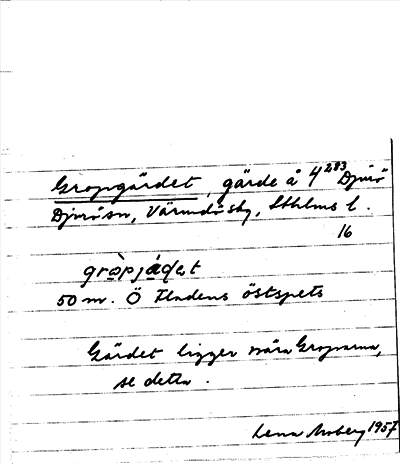 Gropgärdet, gärde å 4²⁸³ Djurö
Djurö sn, Värmdö sky, Sthlms l.
16
gròpjä̀ḍet
50 m. Ö Fladens östspets
Gärdet ligger nära Groparna,
se detta.
Lena Moberg 1957